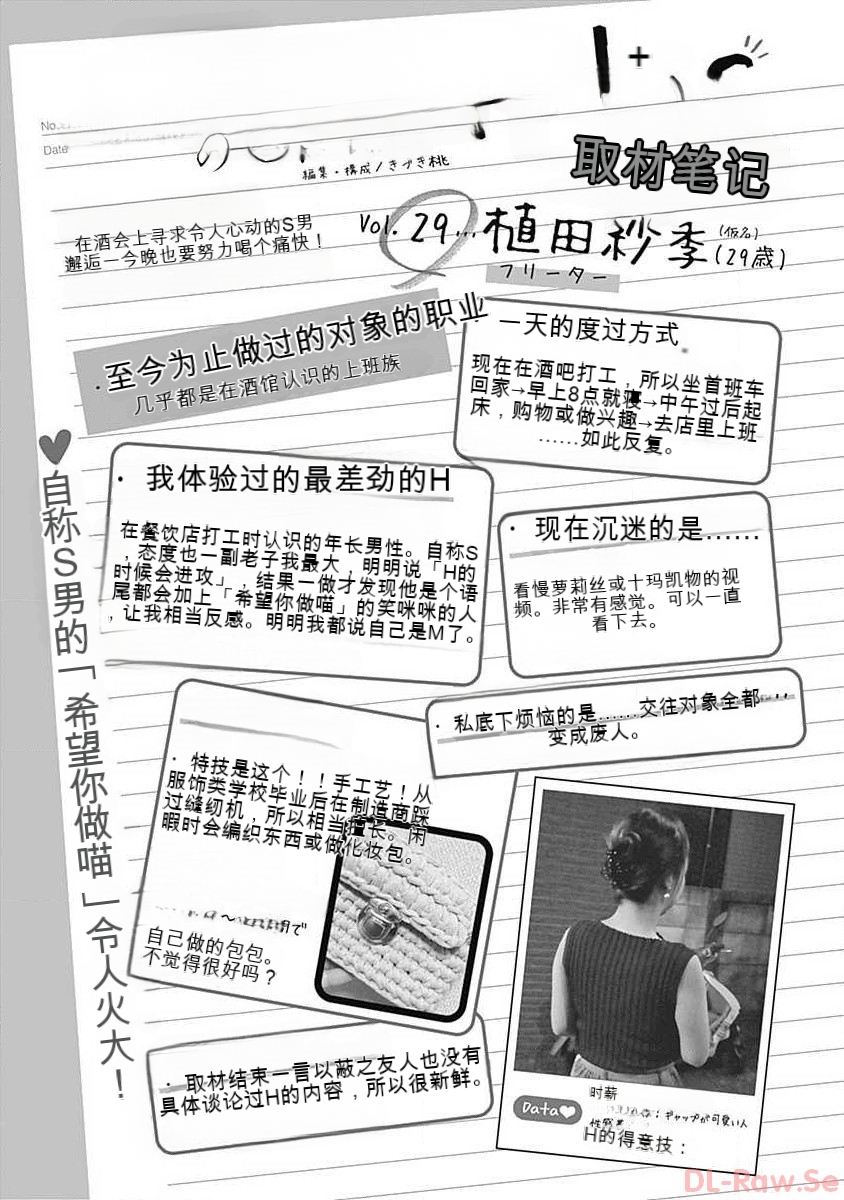 No.
Date
編集・構成/きづき桃
取材笔记
在酒会上寻求令人心动的S男
邂逅一今晚也要努力喝个痛快！
Vol. 29... 植田紗季 (仮名) (29歳)
フリーター
·至今为止做过的对象的职业
几乎都是在酒馆认识的上班族
一天的度过方式
现在在酒吧打工，所以坐首班车
回家→早上8点就寝→中午过后起
床，购物或做兴趣→去店里上班
……如此反复。
♥自称S男的「希望你做喵」令人火大！
· 我体验过的最差劲的H
在餐饮店打工时认识的年长男性。自称S
，态度也一副老子我最大，明明说「H的
时候会进攻」，结果一做才发现他是个语
尾都会加上「希望你做喵」的笑咪咪的人
，让我相当反感。明明我都说自己是M了。
· 现在沉迷的是……
看慢萝莉丝或十玛凯物的视
频。非常有感觉。可以一直
看下去。
· 私底下烦恼的是……交往对象全都…
变成废人。
· 特技是这个！！手工艺！从
服饰类学校毕业后在制造商踩
过缝纫机，所以相当擅长。闲
暇时会编织东西或做化妆包。
自己做的包包。
不觉得很好吗？
· 取材结束一言以蔽之友人也没有
具体谈论过H的内容，所以很新鲜。
Data♥
时薪
：ギャップが可愛い人
性感
H的得意技：
DL-Raw.Se